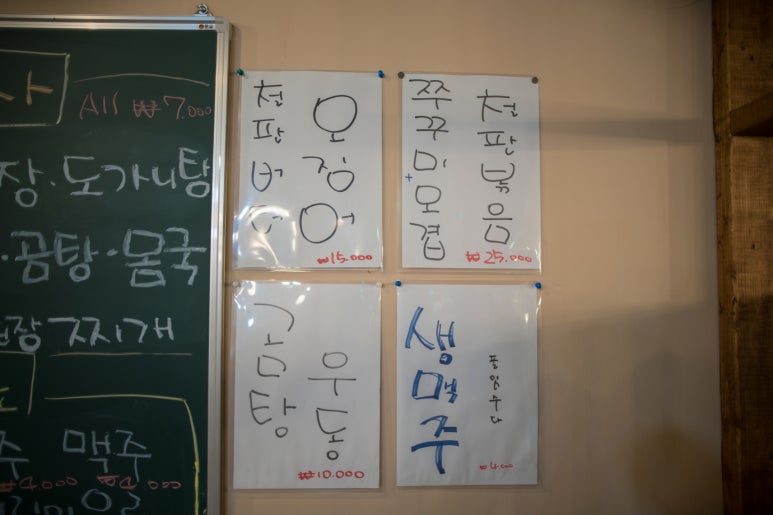 All ₩7.000
장·도가니탕
·곰탕·몸국
장찌개
주 맥주
₩4.000 ₩4.000
철판버터
오징어
₩15.000
쭈꾸미+모겹
철판볶음
₩25.000
우동
₩10.000
생맥주